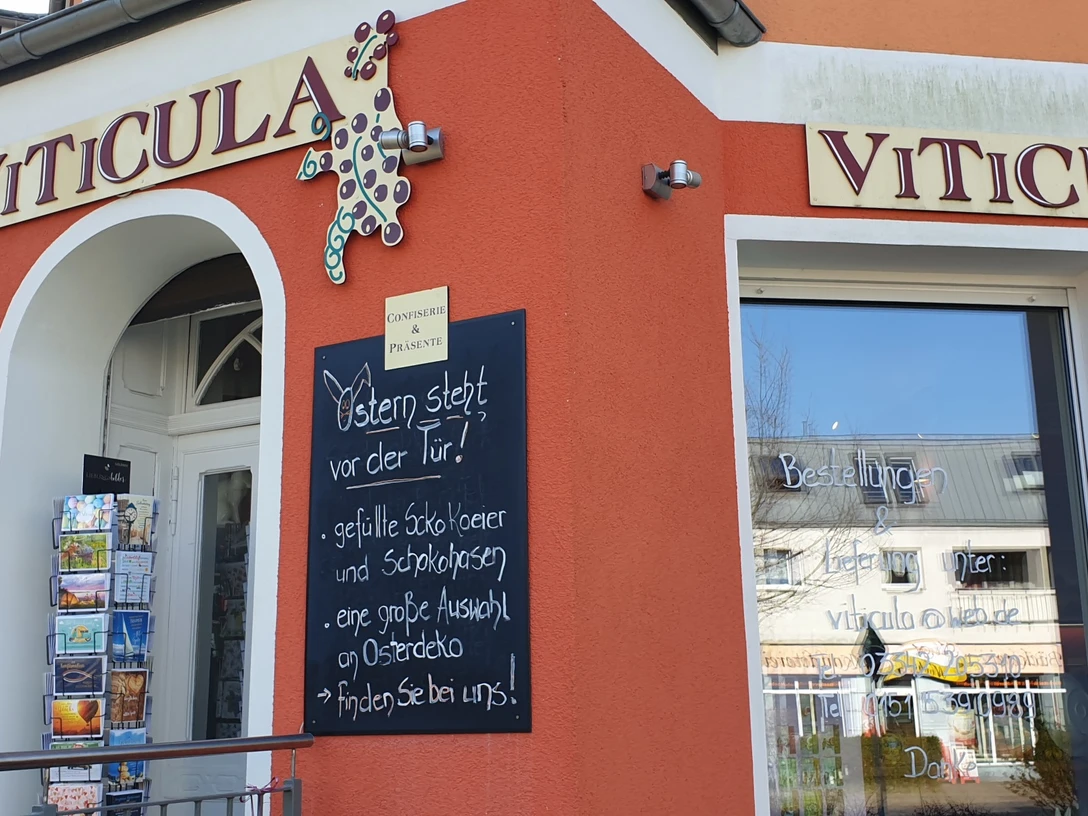 VITICULA
VITICU
CONFISERIE
&
PRÄSENTE
Ostern steht
vor der Tür!
. gefüllte Scko Koeier
und Schokohasen
. eine große Auswahl
an Osterdeko
→ finden Sie bei uns!
Bestellungen
&
Lieferung unter:
viticula@web.de
Tel 03342 205310
Tel 0151
Danke